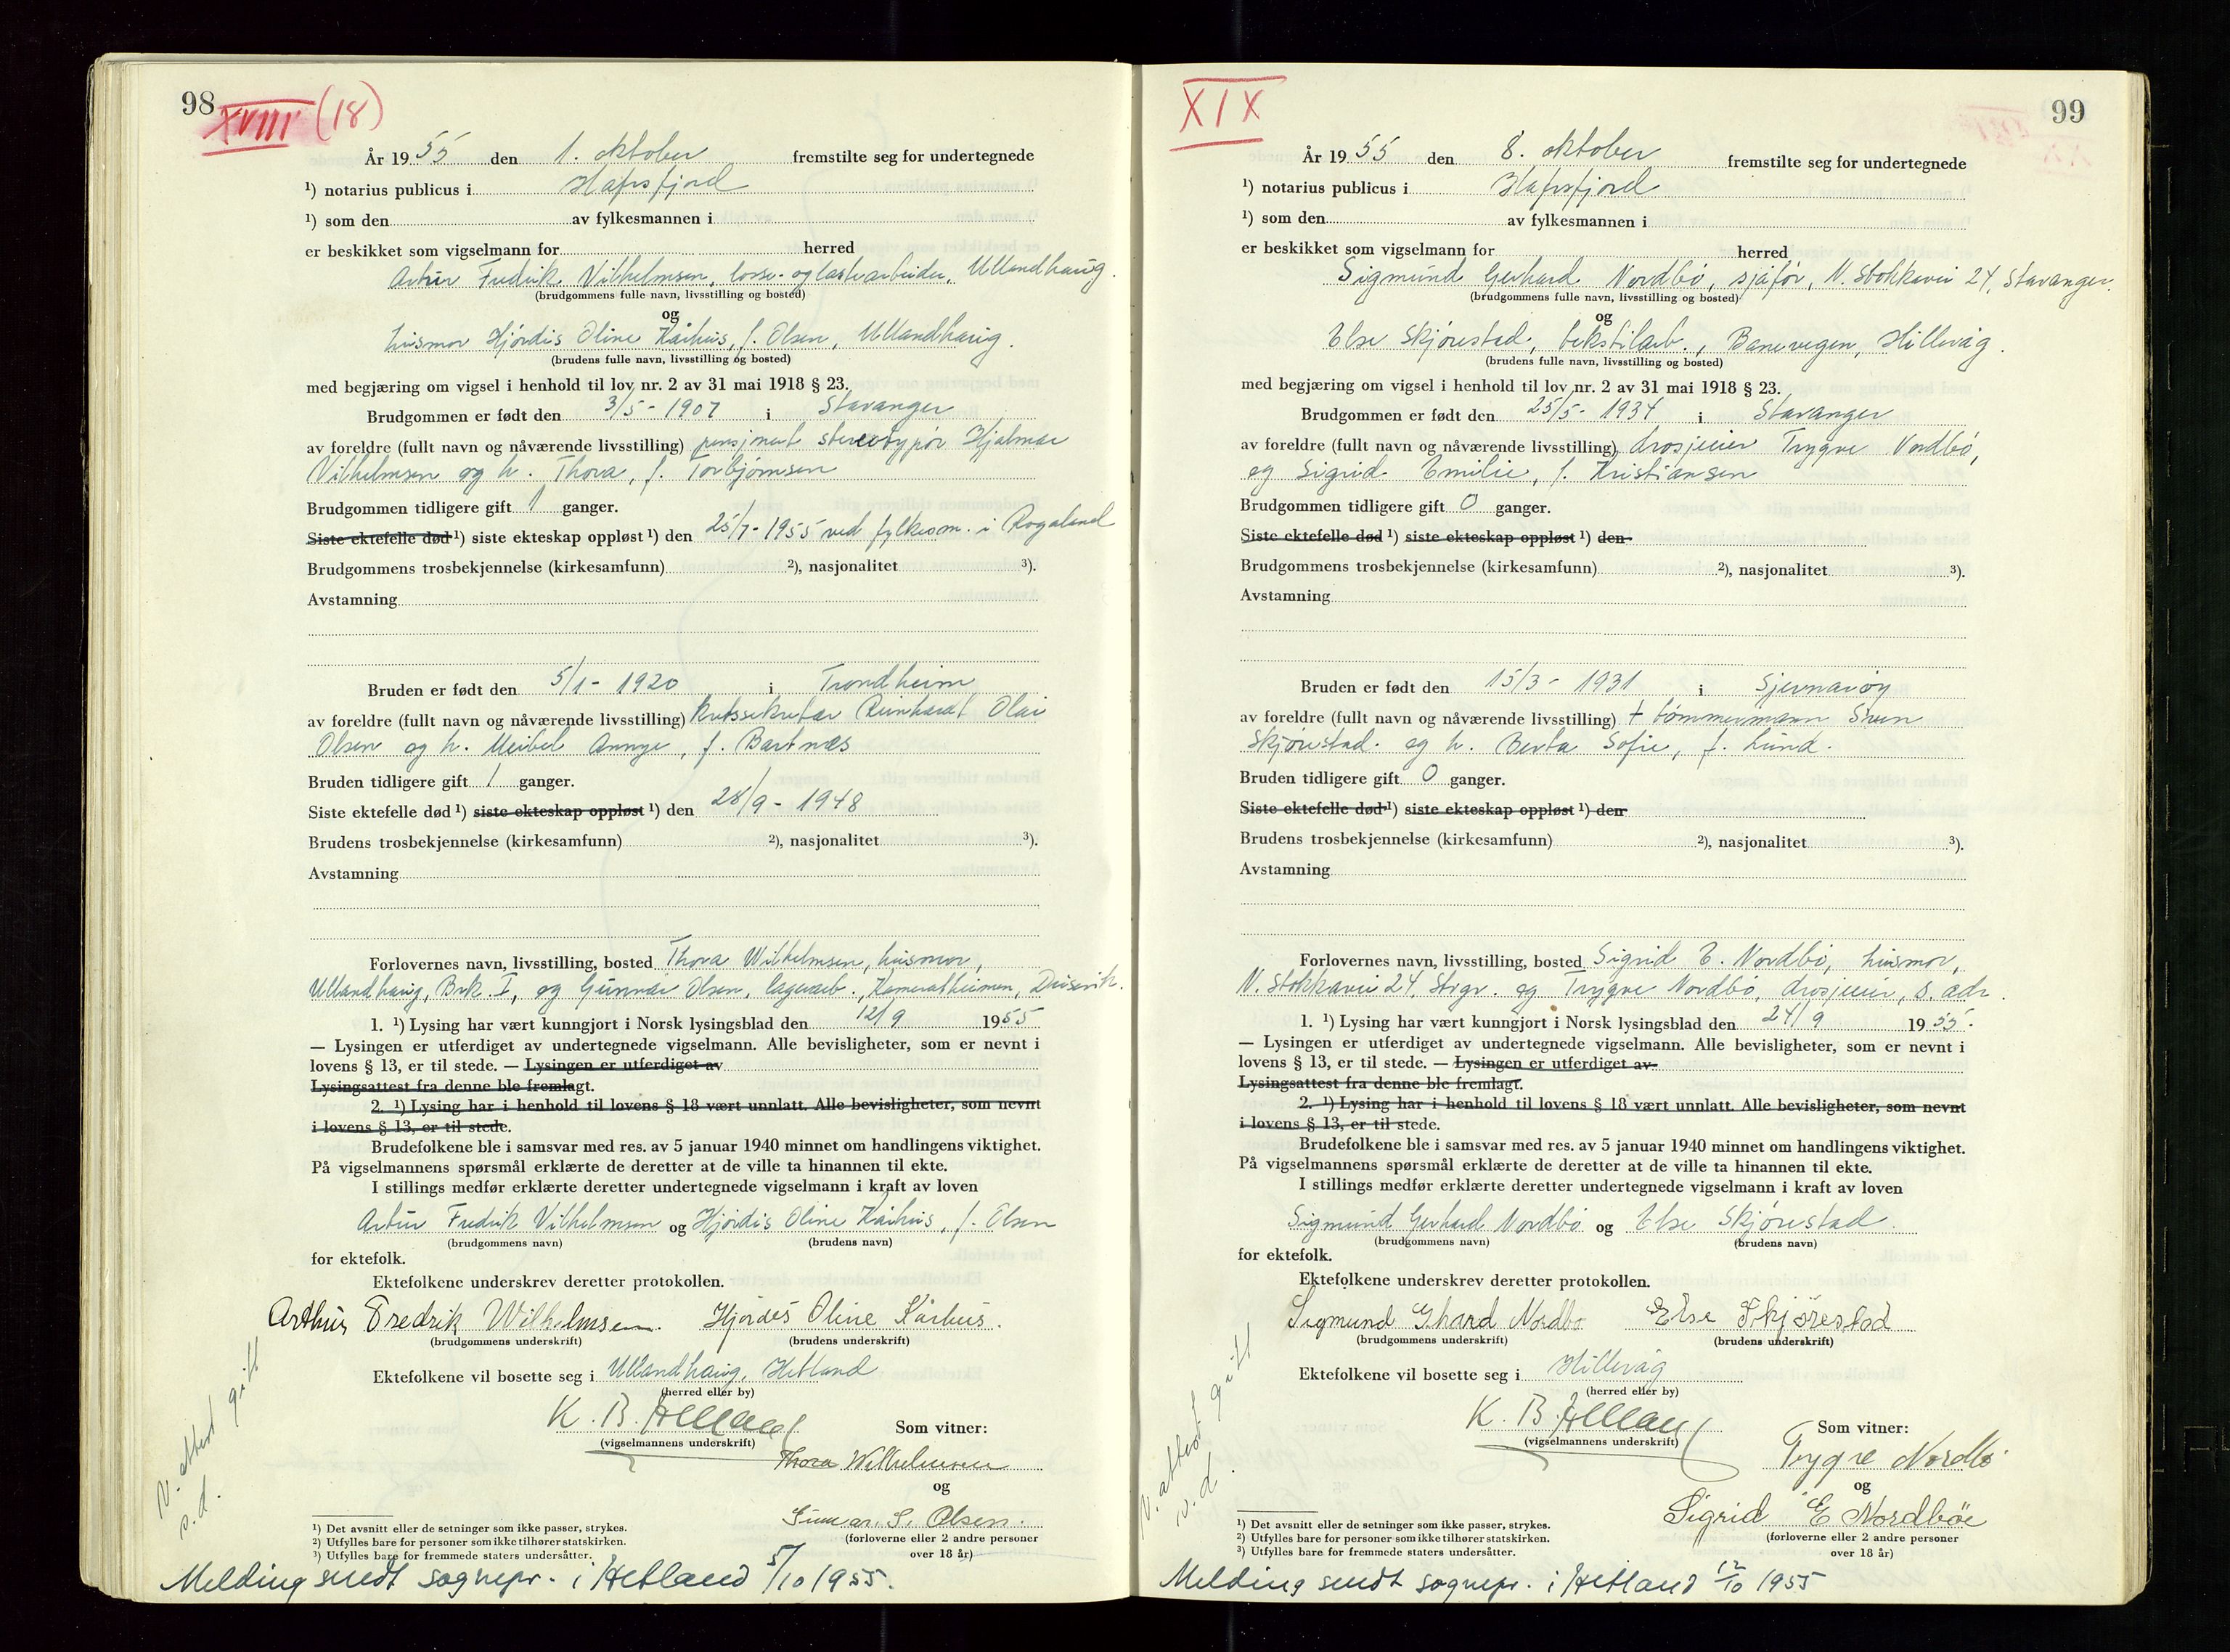 98
XVIII (18)
År 1955 den 1. oktober fremstilte seg for undertegnede
¹) notarius publicus i Hafrsfjord
¹) som den av fylkesmannen i
er beskikket som vigselmann for herred
Artur Fredrik Vilhelmsen, losse- og lastearbeider, Ullandhaug.
(brudgommens fulle navn, livsstilling og bosted)
og
husmor Hjördis Oline Kårhus, f. Olsen, Ullandhaug.
(brudens fulle navn, livsstilling og bosted)
med begjæring om vigsel i henhold til lov nr. 2 av 31 mai 1918 § 23.
Brudgommen er født den 3/5 - 1907 i Stavanger
av foreldre (fullt navn og nåværende livsstilling) pensjonert stereotypör Hjalmar
Vilhelmsen og h. Thora, f. Torbjörnsen
Brudgommen tidligere gift 1 ganger.
Siste ektefelle død ¹) siste ekteskap oppløst ¹) den 25/7 - 1955 ved fylkesm. i Rogaland
Brudgommens trosbekjennelse (kirkesamfunn) ²), nasjonalitet ³).
Avstamning
Bruden er født den 5/1 - 1920 i Trondheim
av foreldre (fullt navn og nåværende livsstilling) kretssekretær Reinhardt Olai
Olsen og h. Meibel Annye, f. Bartnæs
Bruden tidligere gift 1 ganger.
Siste ektefelle død ¹) siste ekteskap oppløst ¹) den 28/9 - 1948
Brudens trosbekjennelse (kirkesamfunn) ²), nasjonalitet ³).
Avstamning
Forlovernes navn, livsstilling, bosted Thora Wilhelmsen, husmor,
Ullandhaug, Brk. I, og Gunnar Olsen, lagerarb., Kameratheimen, Dusavik.
1. ¹) Lysing har vært kunngjort i Norsk lysingsblad den 12/9 1955
— Lysingen er utferdiget av undertegnede vigselmann. Alle bevisligheter, som er nevnt i
lovens § 13, er til stede. — Lysingen er utferdiget av
Lysingsattest fra denne ble fremlagt.
2. ¹) Lysing har i henhold til lovens § 18 vært unnlatt. Alle bevisligheter, som nevnt
i lovens § 13, er til stede.
Brudefolkene ble i samsvar med res. av 5 januar 1940 minnet om handlingens viktighet.
På vigselmannens spørsmål erklærte de deretter at de ville ta hinannen til ekte.
I stillings medfør erklærte deretter undertegnede vigselmann i kraft av loven
Artur Fredrik Vilhelmsen og Hjördis Oline Kårhus, f. Olsen
(brudgommens navn) (brudens navn)
for ektefolk.
Ektefolkene underskrev deretter protokollen.
Arthur Fredrik Wilhelmsen. Hjördis Oline Kårhus.
(brudgommens underskrift) (brudens underskrift)
Ektefolkene vil bosette seg i Ullandhaug, Hetland
(herred eller by)
K. B. Helland
(vigselmannens underskrift)
Som vitner:
Thora Wilhelmsen
og
Gunnar S. Olsen.
(forloverne eller 2 andre personer
over 18 år)
V. attest gift
s.d.
¹) Det avsnitt eller de setninger som ikke passer, strykes.
²) Utfylles bare for personer som ikke tilhører statskirken.
³) Utfylles bare for fremmede staters undersåtter.
Melding sendt sognepr. i Hetland 5/10 1955.
99
XIX
År 1955 den 8. oktober fremstilte seg for undertegnede
¹) notarius publicus i Hafrsfjord
¹) som den av fylkesmannen i
er beskikket som vigselmann for herred
Sigmund Gerhard Nordbö, sjåför, N. Stokkavei 24, Stavanger.
(brudgommens fulle navn, livsstilling og bosted)
og
Else Skjörestad, tekstilarb., Banevegen, Hillevåg.
(brudens fulle navn, livsstilling og bosted)
med begjæring om vigsel i henhold til lov nr. 2 av 31 mai 1918 § 23.
Brudgommen er født den 25/5 - 1934 i Stavanger
av foreldre (fullt navn og nåværende livsstilling) drosjeeier Trygve Nordbö,
og Sigrid Emilie, f. Kristiansen
Brudgommen tidligere gift 0 ganger.
Siste ektefelle død ¹) siste ekteskap oppløst ¹) den
Brudgommens trosbekjennelse (kirkesamfunn) ²), nasjonalitet ³).
Avstamning
Bruden er født den 15/3 - 1931 i Sjernaröy
av foreldre (fullt navn og nåværende livsstilling) + tömmermann Sven
Skjörestad og h. Berta Sofie, f. Lund.
Bruden tidligere gift 0 ganger.
Siste ektefelle død ¹) siste ekteskap oppløst ¹) den
Brudens trosbekjennelse (kirkesamfunn) ²), nasjonalitet ³).
Avstamning
Forlovernes navn, livsstilling, bosted Sigrid E. Nordbö, husmor,
N. Stokkavei 24, Stvgr. og Trygve Nordbö, drosjeeier, s. adr.
1. ¹) Lysing har vært kunngjort i Norsk lysingsblad den 24/9 1955.
— Lysingen er utferdiget av undertegnede vigselmann. Alle bevisligheter, som er nevnt i
lovens § 13, er til stede. — Lysingen er utferdiget av
Lysingsattest fra denne ble fremlagt.
2. ¹) Lysing har i henhold til lovens § 18 vært unnlatt. Alle bevisligheter, som nevnt
i lovens § 13, er til stede.
Brudefolkene ble i samsvar med res. av 5 januar 1940 minnet om handlingens viktighet.
På vigselmannens spørsmål erklærte de deretter at de ville ta hinannen til ekte.
I stillings medfør erklærte deretter undertegnede vigselmann i kraft av loven
Sigmund Gerhard Nordbö og Else Skjörestad.
(brudgommens navn) (brudens navn)
for ektefolk.
Ektefolkene underskrev deretter protokollen.
Sigmund Ghard Nordbo Else Skjörestad
(brudgommens underskrift) (brudens underskrift)
Ektefolkene vil bosette seg i Hillevåg
(herred eller by)
K. B. Helland
(vigselmannens underskrift)
Som vitner:
Trygve Nordbö
og
Sigrid E Nordböe
(forloverne eller 2 andre personer
over 18 år)
V. attest gift
s.d.
¹) Det avsnitt eller de setninger som ikke passer, strykes.
²) Utfylles bare for personer som ikke tilhører statskirken.
³) Utfylles bare for fremmede staters undersåtter.
Melding sendt sognepr. i Hetland 12/10 1955